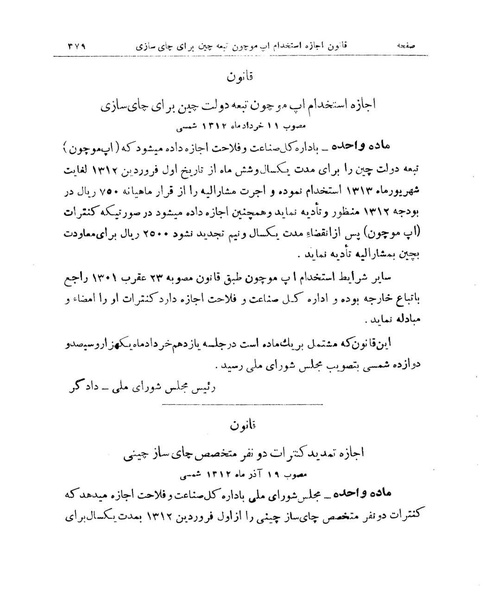 صفحه قانون اجازه استخدام اپ موچون تبعه چین برای چای سازی ۳۷۹
قانون
اجازه استخدام اپ موچون تبعه دولت چین برای چای‌سازی
مصوب ۱۱ خردادماه ۱۳۱۲ شمسی
ماده واحده ـ باداره کل صناعت و فلاحت اجازه داده میشود که (اپ موچون)
تبعه دولت چین را برای مدت یکسال وشش ماه از تاریخ اول فروردین ۱۳۱۲ لغایت
شهریورماه ۱۳۱۳ استخدام نموده و اجرت مشارالیه را از قرار ماهیانه ۷۵۰ ریال در
بودجه ۱۳۱۲ منظور و تأدیه نماید و همچنین اجازه داده میشود در صورتیکه کنترات
(اپ موچون) پس از انقضاء مدت یکسال و نیم تجدید نشود ۲۵۰۰ ریال برای معاودت
بچین بمشارالیه تأدیه نماید .
سایر شرایط استخدام اپ موچون طبق قانون مصوبه ۲۳ عقرب ۱۳۰۱ راجع
باتباع خارجه بوده و اداره کل صناعت و فلاحت اجازه دارد کنترات او را امضاء و
مبادله نماید .
این قانون که مشتمل بر یك ماده است در جلسه یازدهم خرداد ماه یکهزار و سیصد و
دوازده شمسی بتصویب مجلس شورای ملی رسید .
رئیس مجلس شورای ملی ـ دادگر
قانون
اجازه تمدید کنترات دو نفر متخصص چای ساز چینی
مصوب ۱۹ آذر ماه ۱۳۱۲ شمسی
ماده واحده ـ مجلس شورای ملی باداره کل صناعت و فلاحت اجازه میدهد که
کنترات دو نفر متخصص چای‌ساز چینی را از اول فروردین ۱۳۱۲ بمدت یکسال برای